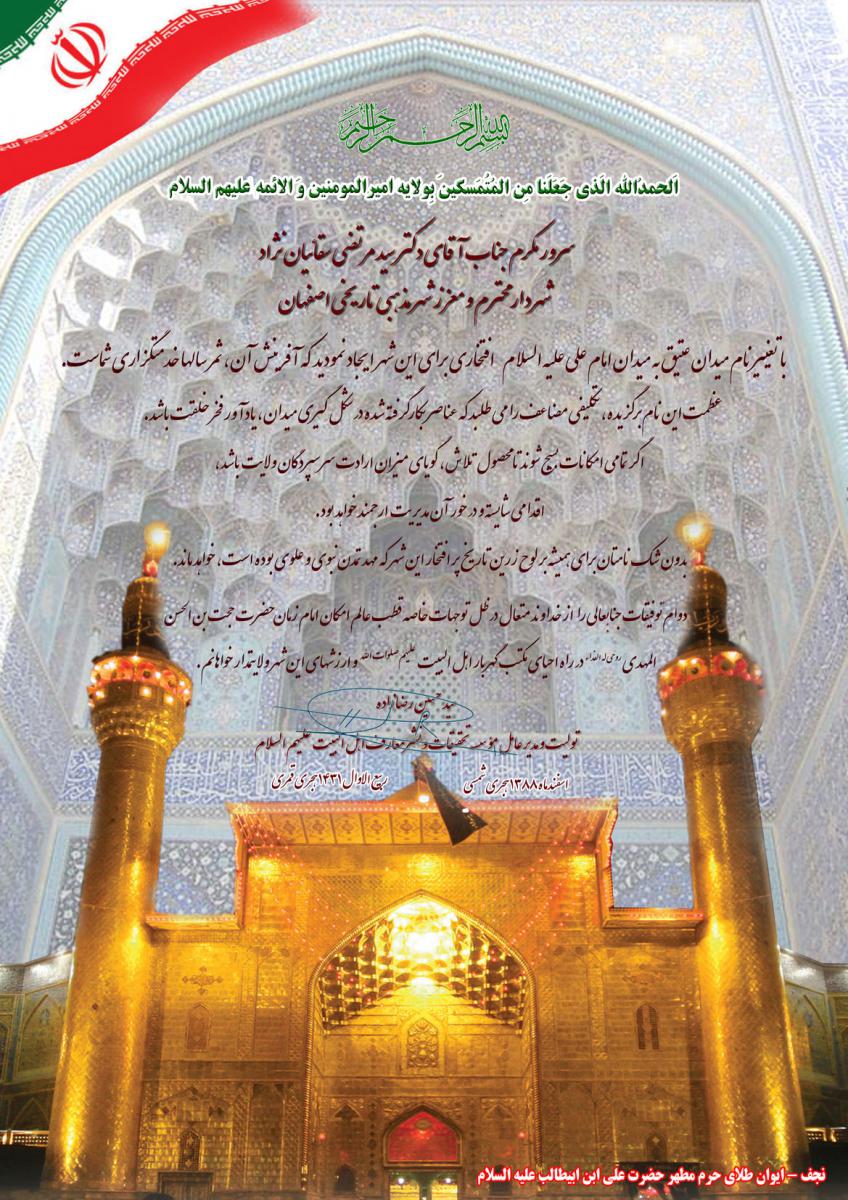 بسم الله الرحمن الرحیم
اَلحمدُالله الَّذی جَعَلَنا مِنَ المُتُمَسکینَ بِولایه امیرالمومنین وَ الائمه علیهم السلام
سرور مکرم جناب آقای دکتر سید مرتضی سقائیان نژاد
شهردار محترم و معزز شهر مذهبی تاریخی اصفهان
با تغییر نام میدان عتیق به میدان امام علی علیه السلام افتخاری برای این شهر ایجاد نمودید که آفرینش آن، ثمر سالها خدمتگزاری شماست.
عظمت این نام برگزیده، تکلیفی مضاعف را می طلبد که عناصر بکار گرفته شده در شکل گیری میدان، یادآور فخر خلقت باشد.
اگر تمامی امکانات بسیج شوند تا محصول تلاش، گویای میزان ارادت سرسپردگان ولایت باشد،
اقدامی شایسته و در خور آن مدیریت ارجمند خواهد بود.
بدون شک نامتان برای همیشه بر لوح زرین تاریخ پر افتخار این شهر که مهد تمدن نبوی و علوی بوده است، خواهد ماند.
دوام توفیقات جنابعالی را از خداوند متعال در ظل توجهات خاصه قطب عالم امکان امام زمان حضرت حجت بن الحسن
المهدی روحی له الفداء در راه احیای مکتب گهربار اهل البیت علیهم صلوات الله و ارزشهای این شهر ولایتمدار خواهانم.
سید حسین رضازاده
تولیت و مدیر عامل مؤسسه تحقیقات و نشر معارف اهل البیت علیهم السلام
اسفند ماه ۱۳۸۸ هجری شمسی ربیع الاول ۱۴۳۱ هجری قمری
نجف - ایوان طلای حرم مطهر حضرت علی ابن ابیطالب علیه السلام